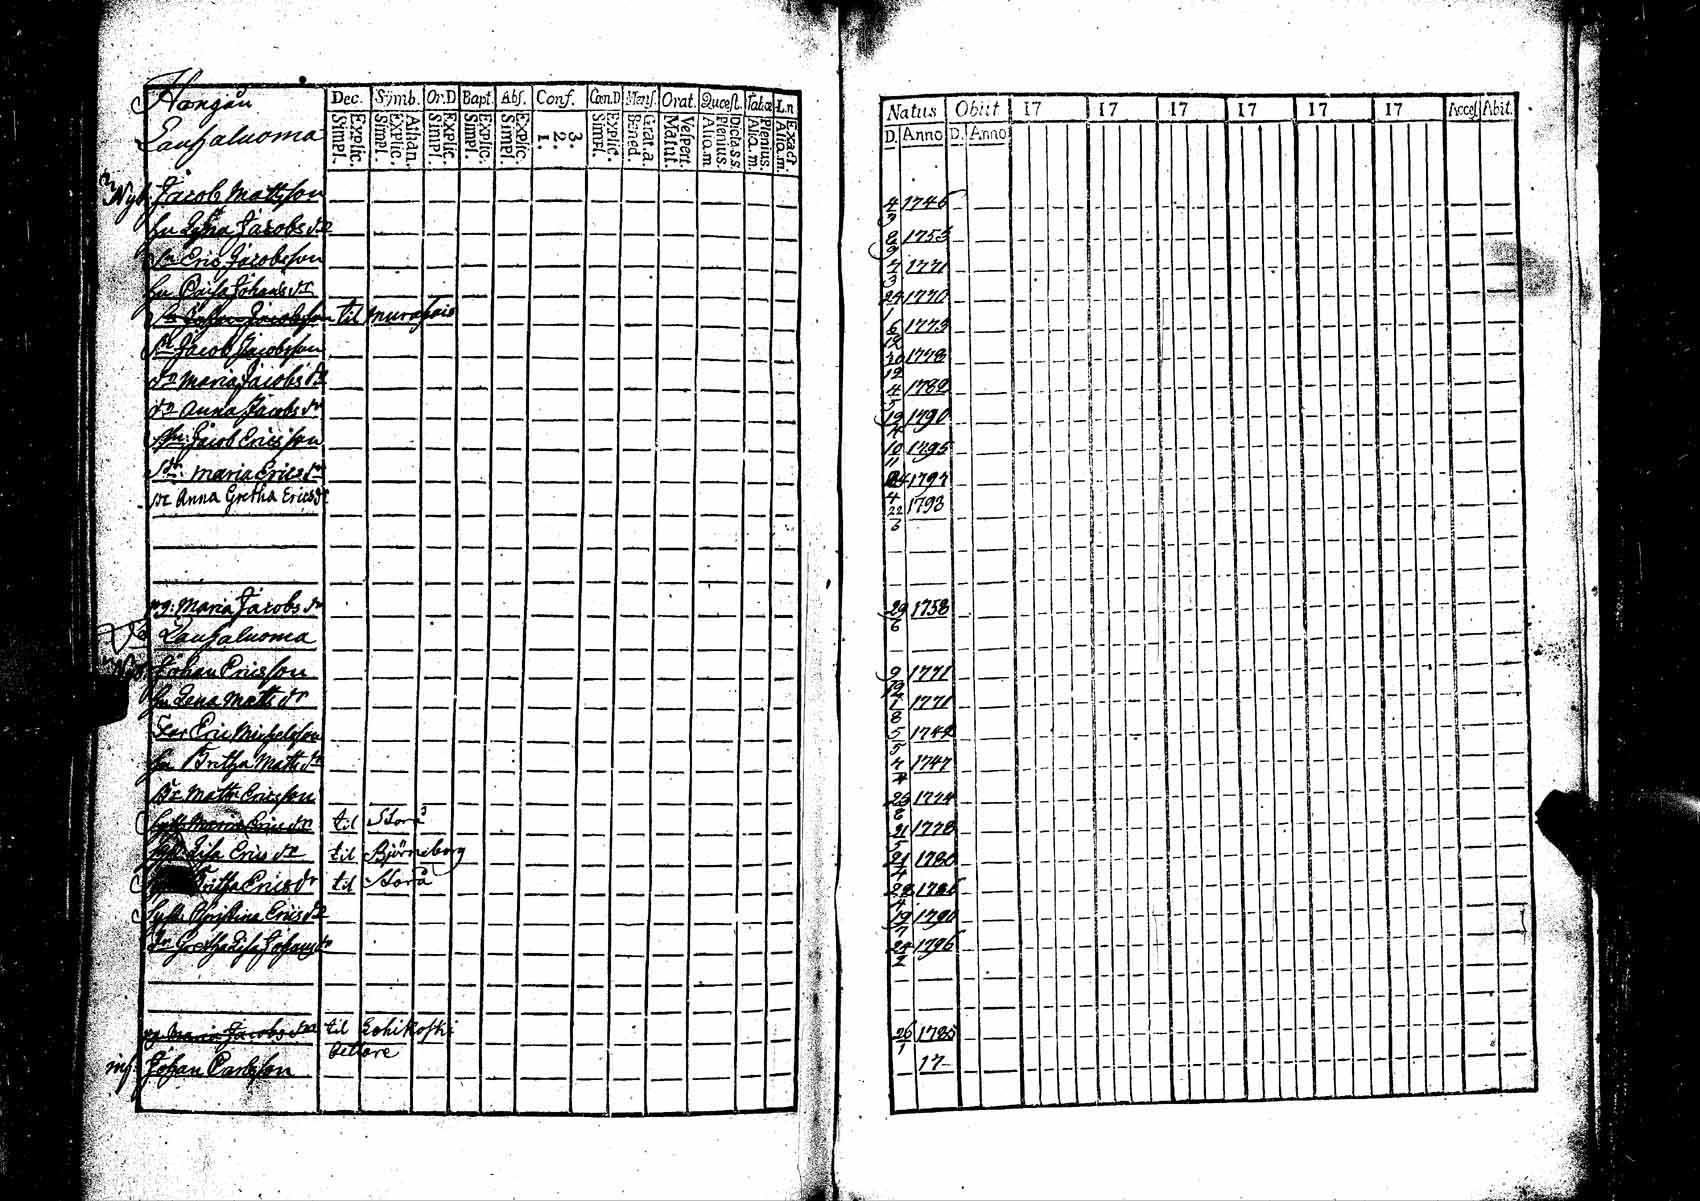 Hongån
Dec. Symb. Or.D Bapt. Abs. Conf. Cœn.D Mens. Orat. Quæst. Tabæ Ln
Natus Obiit 17 17 17 17 17 17 Acces Abit.
Lauhaluoma
Explic. Simpl. Athan. Explic. Simpl. Explic. Simpl. Explic. Simpl. Explic. Simpl. 3. 2. 1. Explic. Simpl. Grat.a. Bened. Vespert. Matut. Dict.a.s.s. Plenius. Aliq.m Plenius. Aliq.m Exact. Aliq.m
D. Anno D. Anno
Nyb. Jacob Mattsson 4/9 1746
hu Jacobs dr 8/9 1753
Sn Eric Jacobsson 7/3 1771
hu Caisa Johans dr 24/1 1770
Sn Johan Jacobsson til 6/12 1773
Sn Jacob Jacobsson 20/12 1778
dr Maria Jacobs dr 4/5 1782
dr Anna Jacobs dr 12 1790
Sn: Jacob Ericsson 10/11 1795
dr: Maria Erics dr 24/4 1797
dr Anna Gretha Erics dr 22/3 1793
pg: Maria Jacobs dr 29/6 1758
Lauhaluoma
Nyb. Johan Ericsson 9 1771
hu Lena Matts dr 1/8 1771
Far Eric Michelsson 5/5 1742
hu Britha Matts dr 1747
Br Matts Ericsson 23/8 1774
Syst. Maria Erics dr til Storå 21/5 1778
Lisa Erics dr til Björneborg 21/4 1780
Britha Erics dr til Storå 28/4
Syst. Christina Erics dr 19/7 1790
dr Gretha Lisa Johans dr 24/2 1796
pg. Maria Jacobs dr til Lohikoski 26/1 1785
inh. Johan Carlsson 17